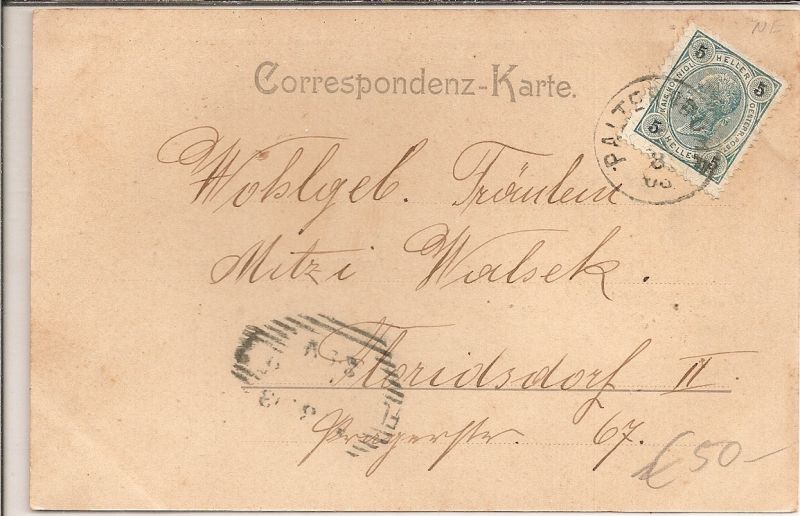 NE
Correspondenz-Karte.
5 HELLER 5
KAIS.KÖNIGL. OESTERR.POST
5 HELLER 5
PALTE
8
03
Wohlgeb. Fräulein
Mitzi Walsek.
Floridsdorf II.
Pragerstr. 67.
£50-